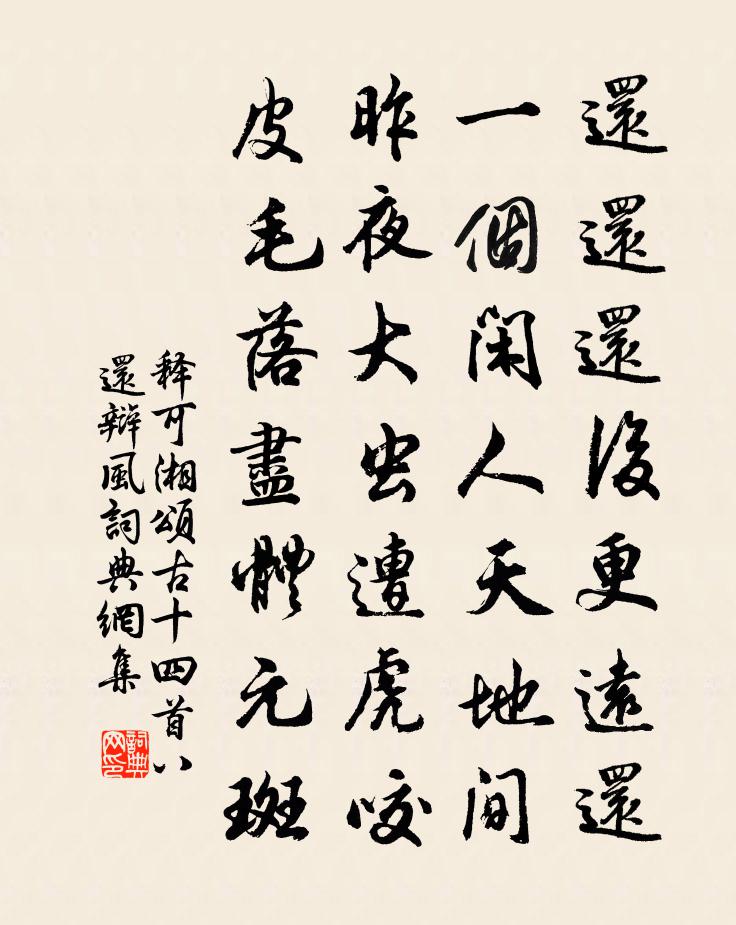 還還還後更遠還
一個閑人天地間
昨夜大虫遭虎咬
皮毛落盡體元斑
释可湘頌古十四首八
還辯風詞典網集
詞典网印